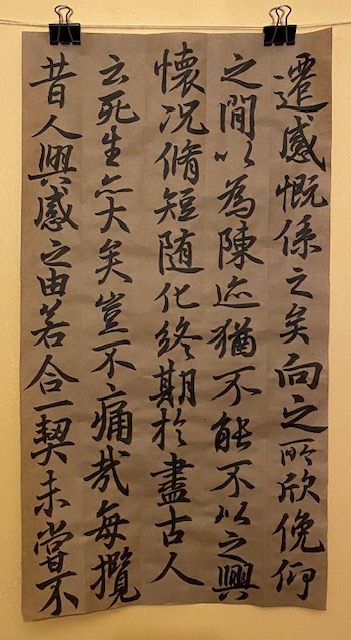 遷感慨係之矣向之所欣俛仰
之間以為陳迹猶不能不以之興
懷況脩短随化終期於盡古人
云死生亦大矣豈不痛哉每攬
昔人興感之由若合一契未嘗不